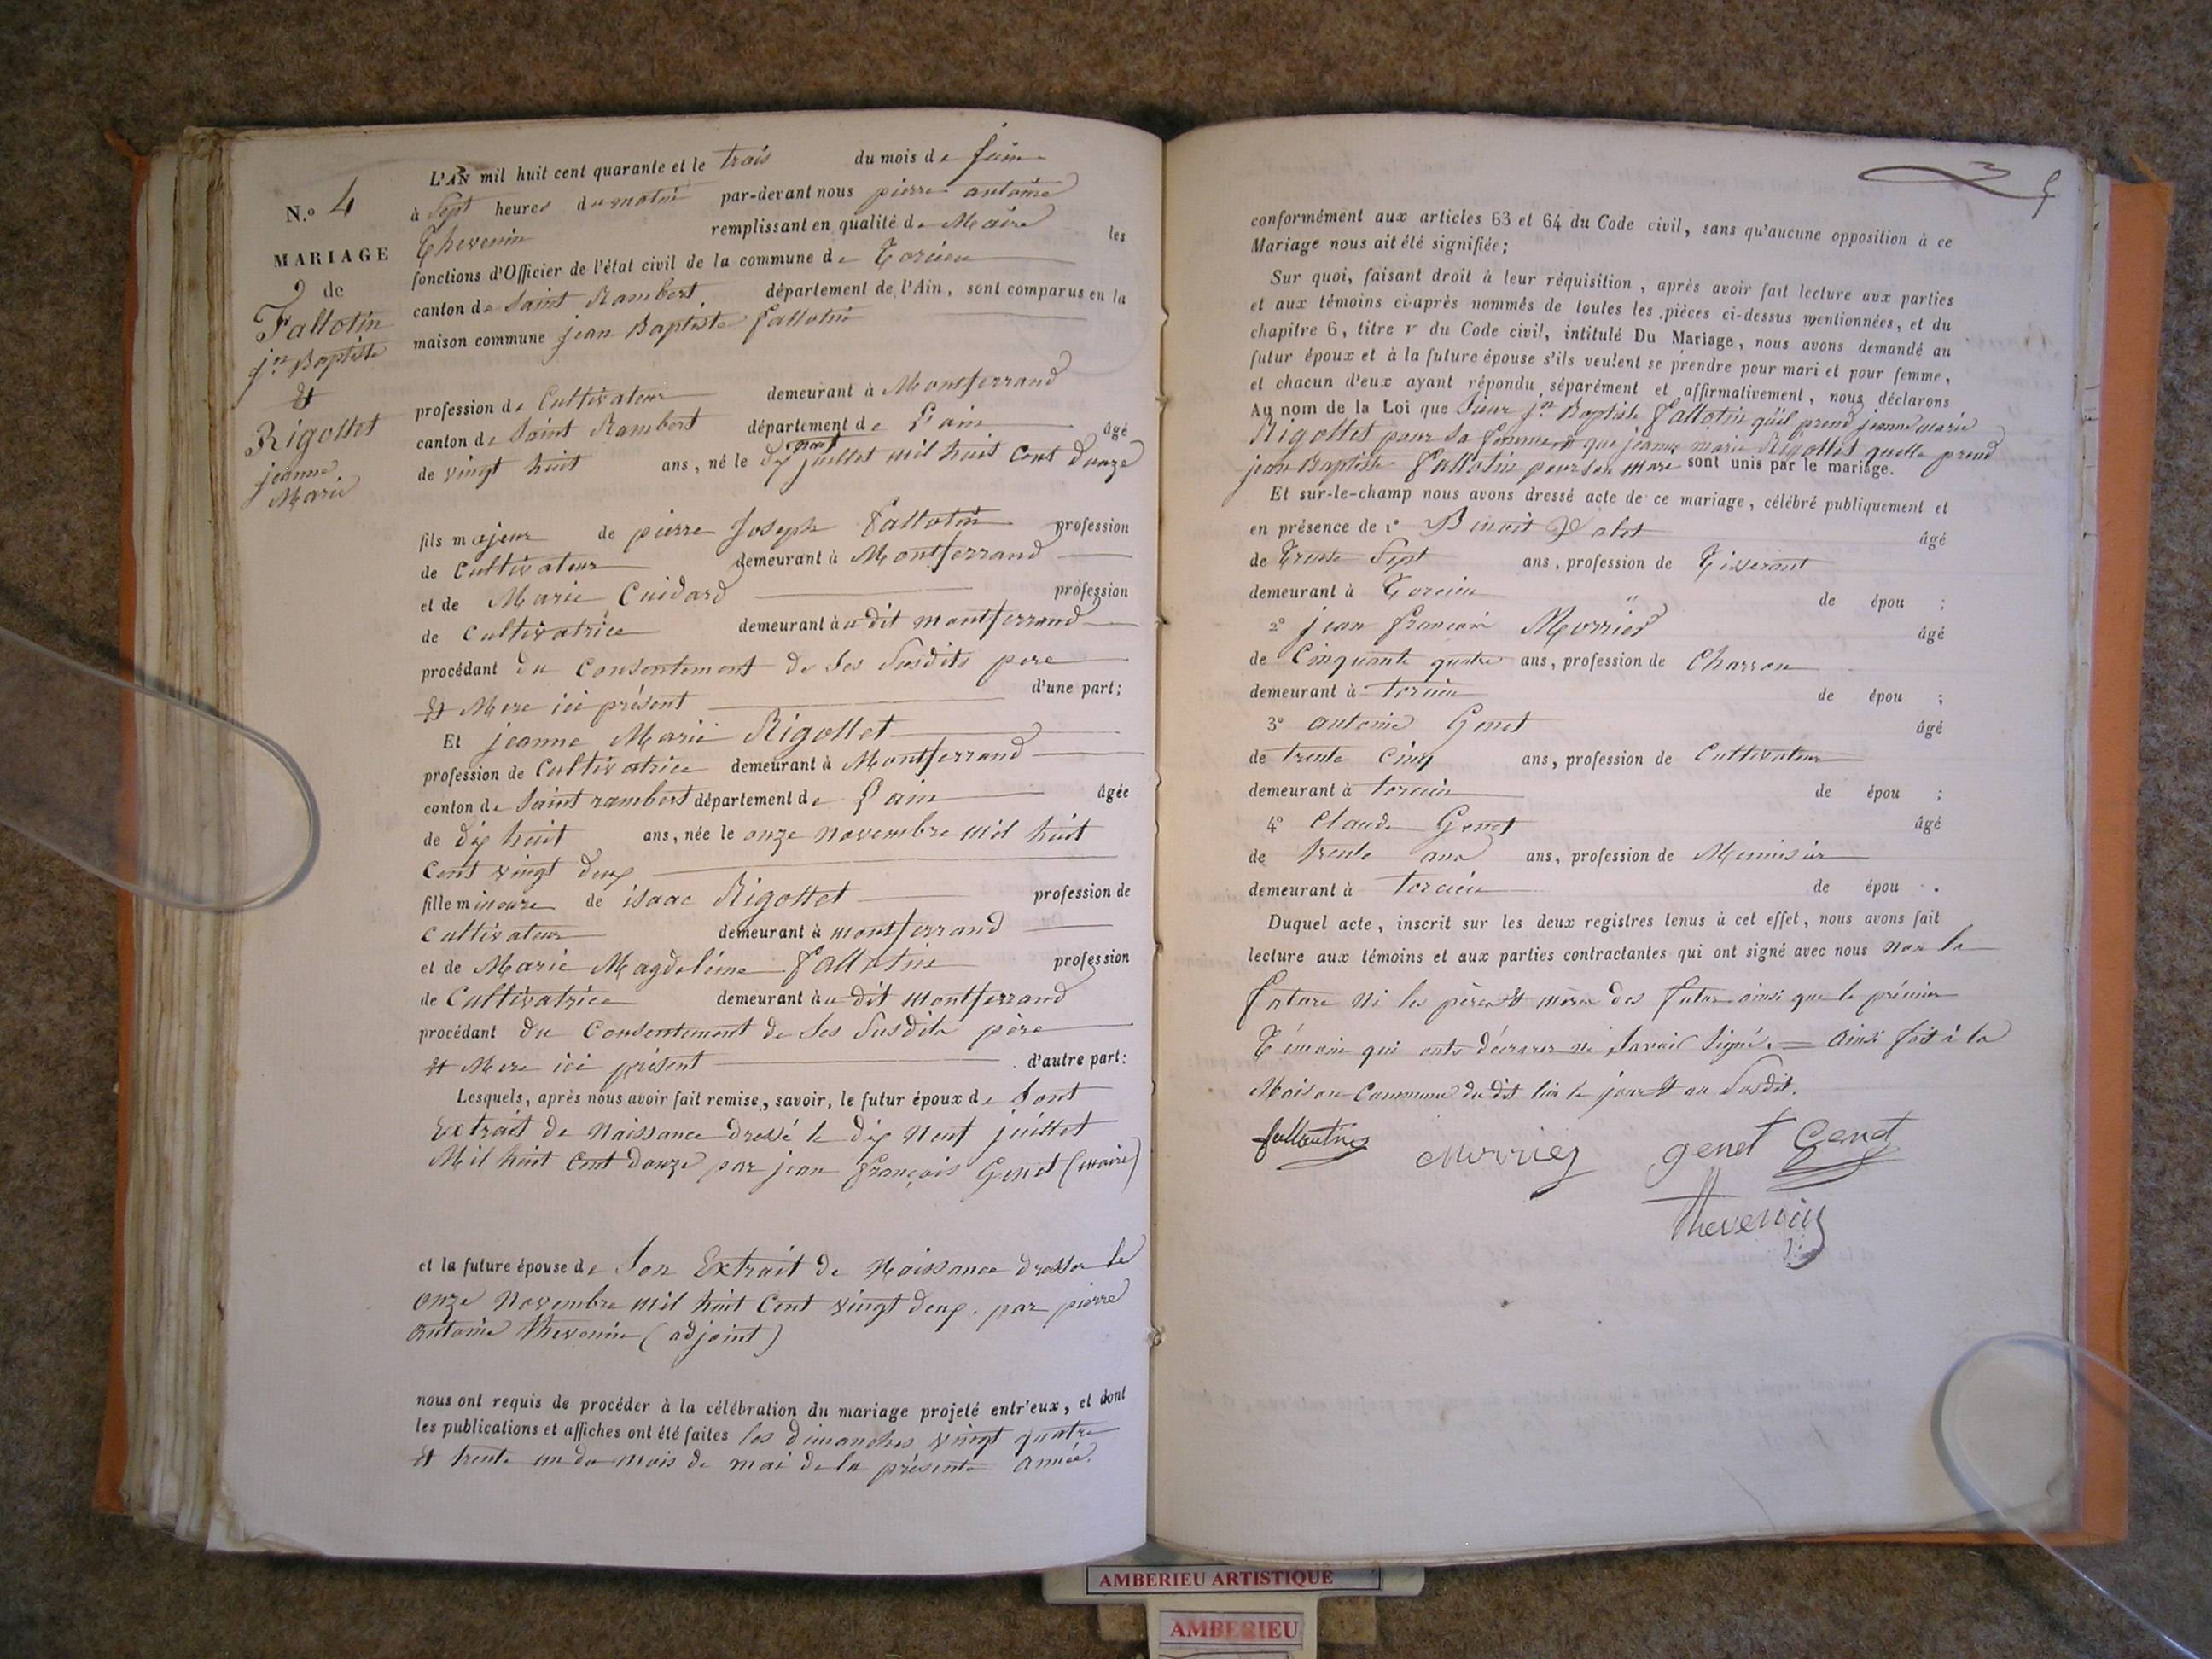 N.o 4
MARIAGE
de
Fallotin
jn Baptiste
et
Rigollet
jeanne
Marie
L'AN mil huit cent quarante et le trois du mois de juin
à Sept heures du matin par-devant nous pierre antoine
Thevenin remplissant en qualité de Maire les
fonctions d'Officier de l'état civil de la commune de Torcieu
canton de Saint Rambert département de l'Ain, sont comparus en la
maison commune jean Baptiste fallotin
profession de Cultivateur demeurant à Montferrand
canton de Saint Rambert département de l'ain âgé
de vingt huit ans, né le dix neuf juillet mil huit cent douze
fils majeur de pierre Joseph fallotin profession
de Cultivateur demeurant à Montferrand
et de Marie Cuidard profession
de Cultivatrice demeurant à u dit montferrand
procédant du Consentement de Ses Susdits pere
et Mere ici présent d'une part;
Et jeanne Marie Rigollet
profession de Cultivatrice demeurant à Montferrand
canton de Saint rambert département de l'ain âgée
de dix huit ans, née le onze novembre mil huit
Cent vingt deux
fille mineure de isaac Rigollet profession de
Cultivateur demeurant à montferrand
et de Marie Magdeleine fallotin profession
de Cultivatrice demeurant à u dit montferrand
procédant du Consentement de Ses Susdits père
et Mere ici présent d'autre part:
Lesquels, après nous avoir fait remise, savoir, le futur époux de Sont
Extrait de Naissance dressé le dix Neuf juillet
Mil huit Cent douze par jean françois Genet (maire)
et la future épouse de Son Extrait de Naissance dresser le
onze Novembre mil huit Cent vingt deux. par pierre
antoine thevenin (adjoint)
nous ont requis de procéder à la célébration du mariage projeté entr'eux, et dont
les publications et affiches ont été faites les dimanches vingt quatre
et trente un du mois de mai de la présente année.
conformément aux articles 63 et 64 du Code civil, sans qu'aucune opposition à ce
Mariage nous ait été signifiée;
Sur quoi, faisant droit à leur réquisition, après avoir fait lecture aux parties
et aux témoins ci-après nommés de toutes les pièces ci-dessus mentionnées, et du
chapitre 6, titre V du Code civil, intitulé Du Mariage, nous avons demandé au
futur époux et à la future épouse s'ils veulent se prendre pour mari et pour femme,
et chacun d'eux ayant répondu séparément et affirmativement, nous déclarons
Au nom de la Loi que Sieur jn Baptiste fallotin qu'il prend jeanne marie
Rigollet pour Sa femme et que jeanne marie Rigollet quelle prend
jean Baptiste fallotin pour son mari sont unis par le mariage.
Et sur-le-champ nous avons dressé acte de ce mariage, célébré publiquement et
en présence de 1o Binoit Valet âgé
de Trente Sept ans, profession de Tisserant
demeurant à Torcieu de épou ;
2o jean francois Murrier âgé
de Cinquante quatre ans, profession de Charron
demeurant à torcieu de épou ;
3o antoine Genet âgé
de trente cinq ans, profession de Cultivateur
demeurant à torcieu de épou ;
4o Claude Genet âgé
de trente ans, profession de Menuisier
demeurant à Torcieu de épou .
Duquel acte, inscrit sur les deux registres tenus à cet effet, nous avons fait
lecture aux témoins et aux parties contractantes qui ont signé avec nous non la
future ni les pères et mères des futur ainsi que le prémier
Témoin qui onts déclarer ne Savoir Signé. = ainsi fait à la
Maison Commune du dit lieu le jour et an Susdit.
Genet
genet
Thevenin
AMBERIEU ARTISTIQUE
AMBERIEU